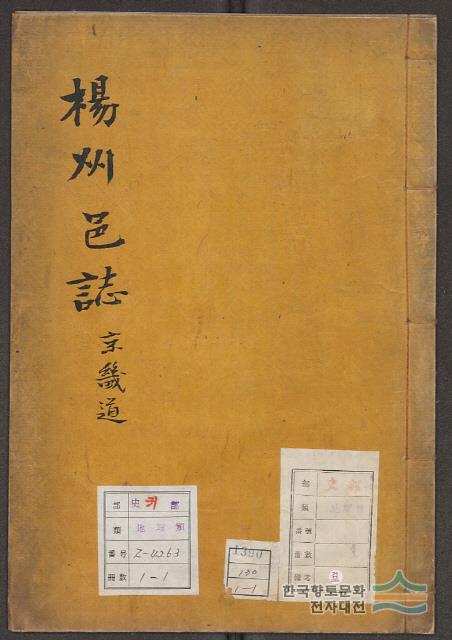 楊州邑誌
京畿道
部 史키部
類 地理類
番号 Z-4263
冊數 1-1
1380
130
1-1
部 史部
類
番號
冊數
備考 검
한국향토문화
전자대전